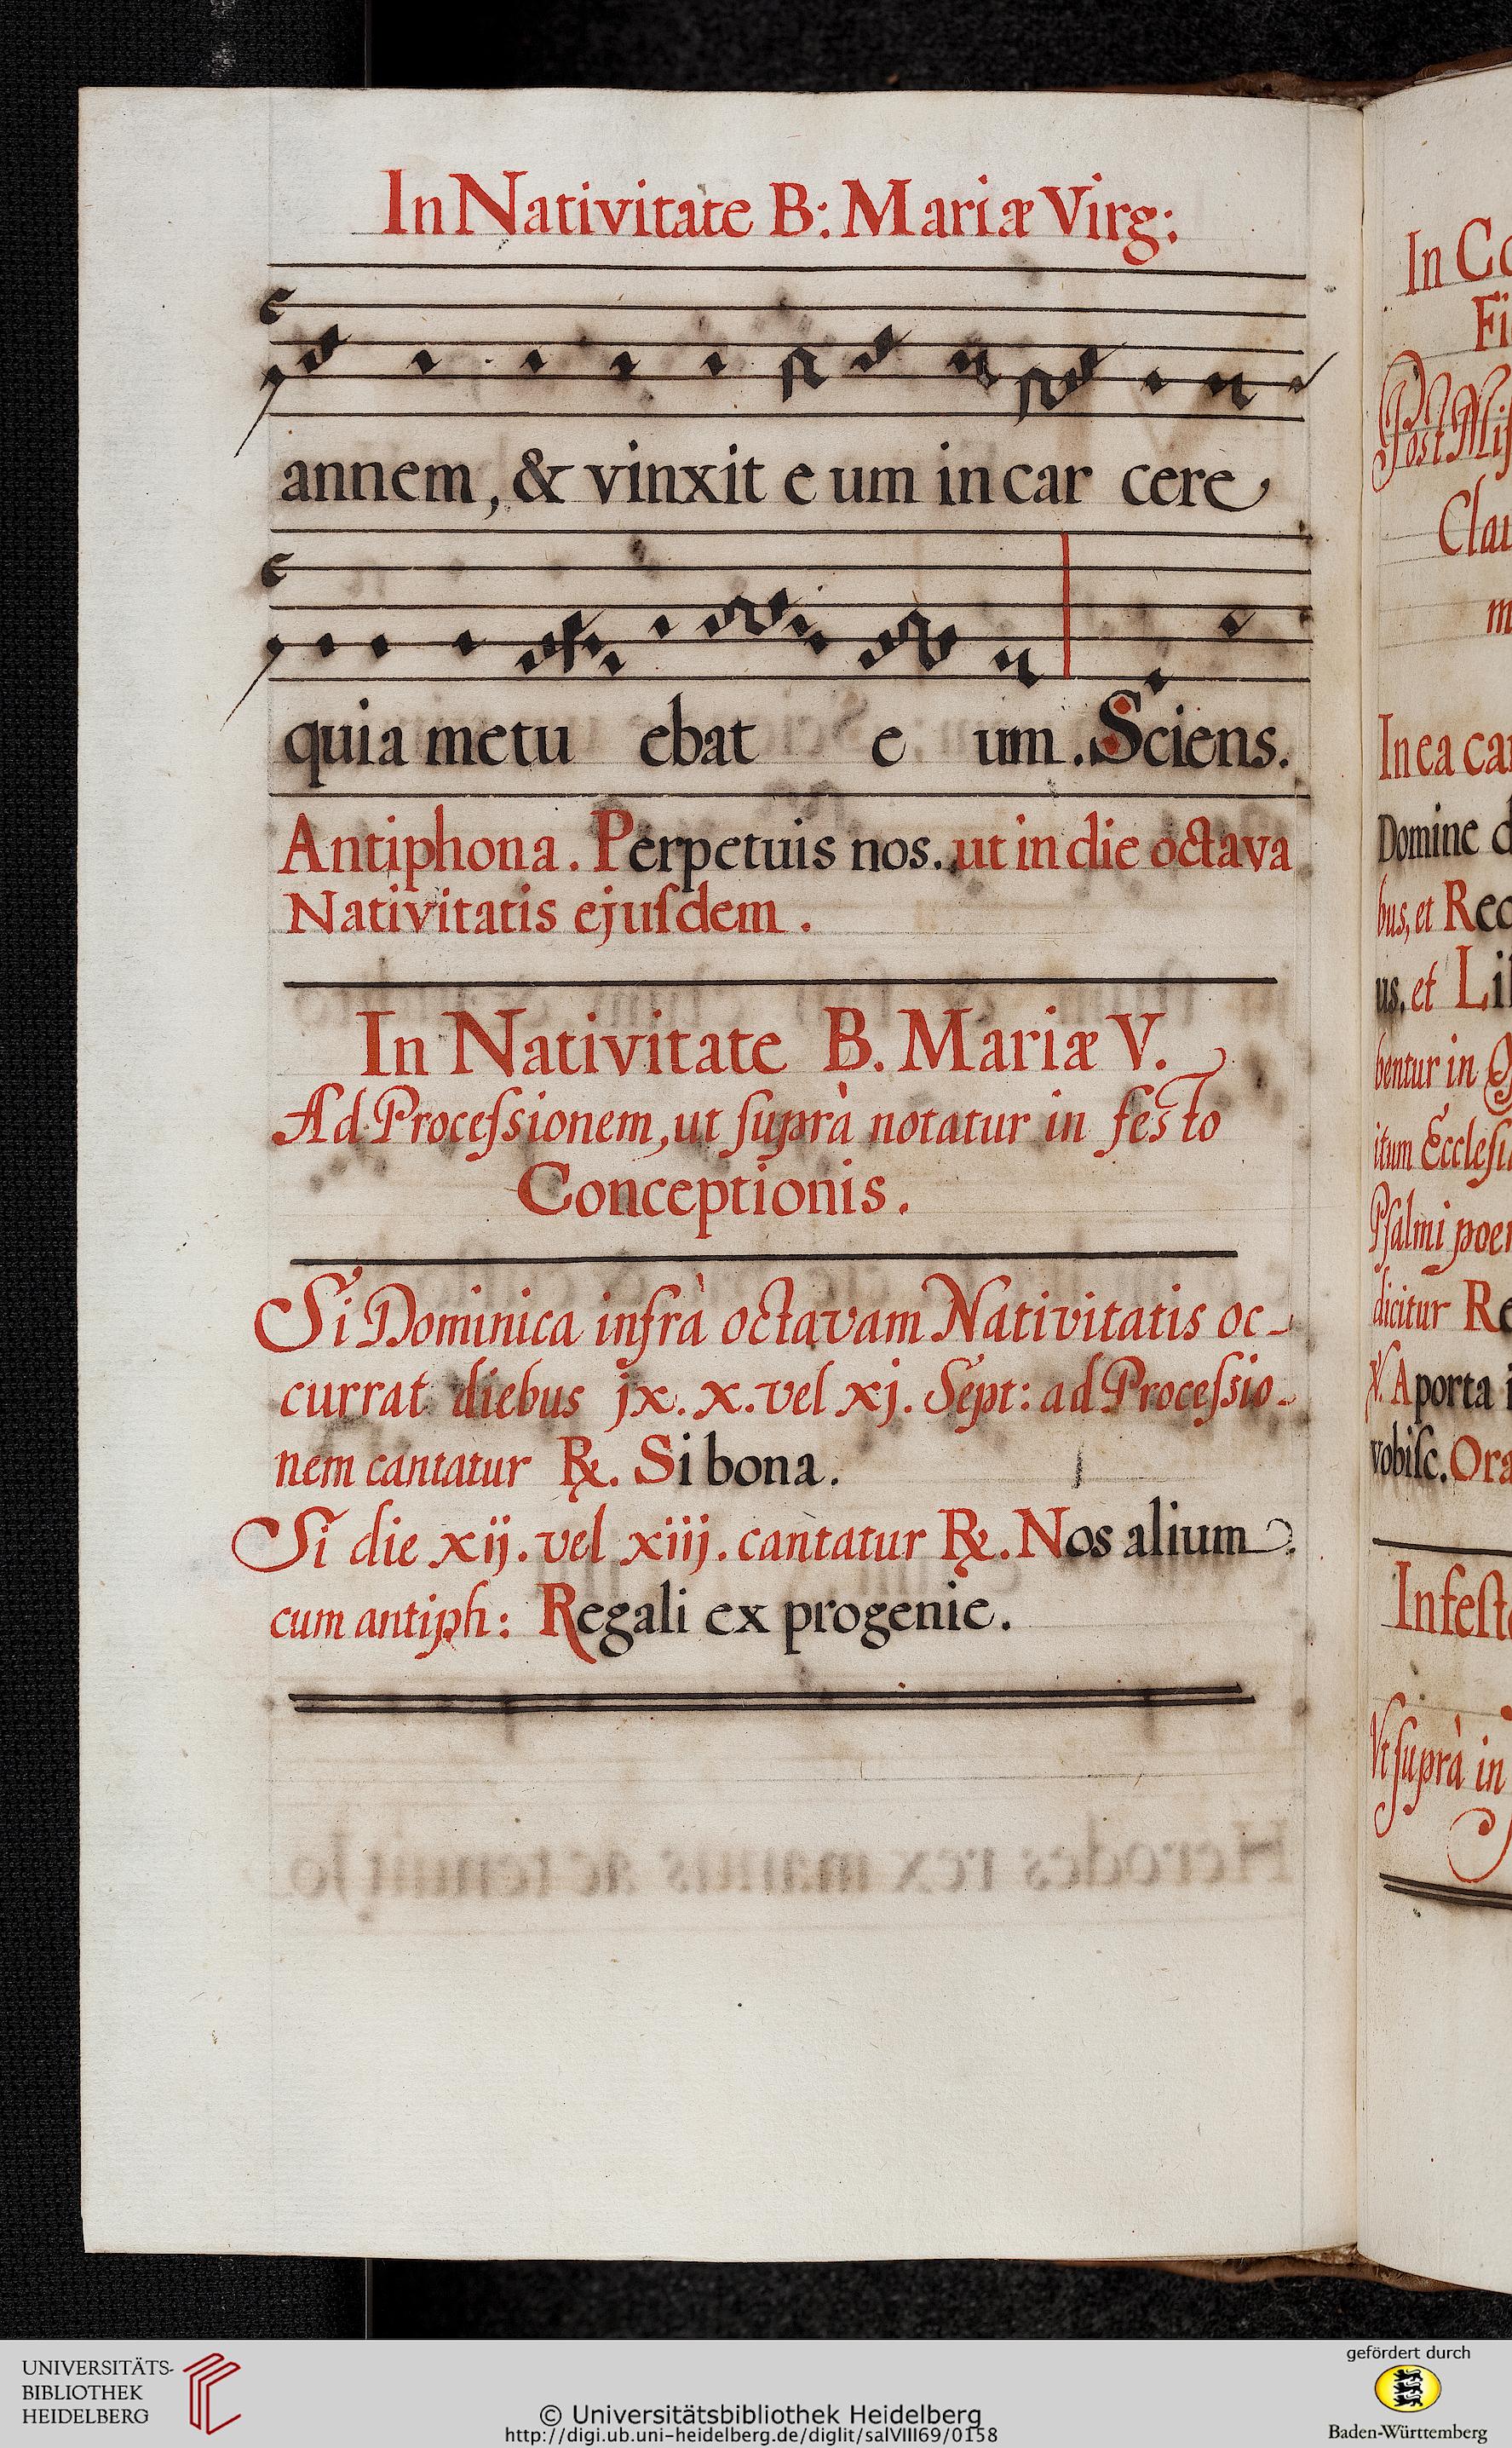 In Nativitate B: Mariæ Virg:
annem, & vinxit e um in car cere
quia metu ebat e um. Sciens.
Antiphona. Perpetuis nos. ut in die octava
Nativitatis ejuſdem.
In Nativitate B. Mariæ V.
Ad Proceſsionem, ut ſuprà notatur in feſto
Conceptionis.
Si Dominica infrà octavam Nativitatis oc-
currat diebus jx. x. vel xj. Sept: ad Proceſsio-
nem cantatur ℞. Si bona.
Si die xij. vel xiij. cantatur ℞. Nos alium
cum antiph: Regali ex progenie.
In
Post
In ea
Domine
bus, et
us. et
bentur in
itum
Pſalmi
dicitur
℣. A porta
vobiſc.
In feſt
Vt ſuprà in
UNIVERSITÄTS-
BIBLIOTHEK
HEIDELBERG
© Universitätsbibliothek Heidelberg
http://digi.ub.uni-heidelberg.de/diglit/salVIII69/0158
gefördert durch
Baden-Württemberg